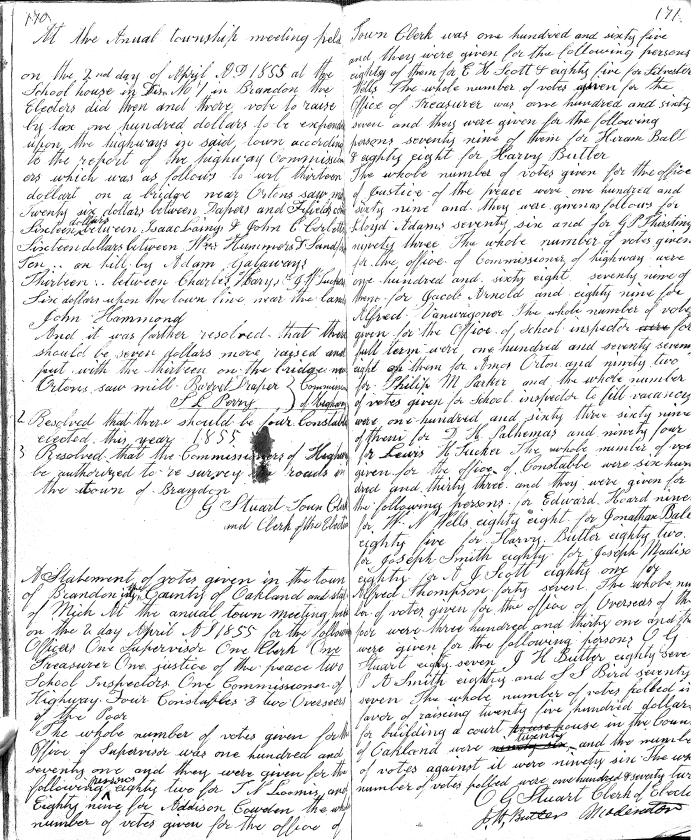 170
At the Anual township meeting held
on the 2nd day of April AD 1855 at the
School house in Dist No 1 in Brandon the
Electers did then and there vote to raise
by tax one hundred dollars to be expended
upon the highways in said town according
to the report of the highway Commission
ers which was as follows to wit thirteen
dollars on a bridge near Ortons saw mill
Twenty six dollars between Drapers and
Sixteen dollars between Isaac & John C
Sixteen dollars between Wm Hummers &
Ten .. on hill by Adam Galaways
Thirteen .. between Charles & G W
Six dollars upon the town line near the
John Hammond
And it was farther resolved that there
should be seven dollars more raised and
put with the thirteen on the bridge near
Ortons saw mill Draper } Commissioners
S L Perry } of Highways
2 Resolved that there should be four Constables
elected this year 1855
3 Resolved that the Commissioners of Highways
be authorized to re survey roads in
the town of Brandon
C G Stuart Town Clerk
and Clerk of the Election
A Statement of votes given in the town
of Brandon in the County of Oakland and state
of Mich At the annual town meeting held
on the 2 day April AD 1855 for the following
Officers One Supervisor One Clerk One
Treasurer One justice of the peace two
School Inspectors One Commissioner of
Highway Four Constables & two Overseers
of the Poor
The whole number of votes given for the
Office of Supervisor was one hundred and
seventy one and they were given for the
following persons eighty two for T N Loomis, and
Eighty nine for Addison Cowden the whole
number of votes given for the office of
171
Town Clerk was one hundred and sixty five
and they were given for the following persons
eighty of them for E H Scott & eighty five for Silvester
Wells The whole number of votes given for the
Office of Treasurer was one hundred and sixty
seven and they were given for the following
persons seventy nine of them for Hiram Ball
& eighty eight for Harvy Butler
The whole number of votes given for the office
of Justice of the peace were one hundred and
sixty nine and they were given as follows for
Lloyd Adams seventy six and for G P Thirsting
ninety three The whole number of votes given
for the office of Commissioner of highway were
one hundred and sixty eight seventy nine of
them for Jacob Arnold and eighty nine for
Alfred Vanwagoner The whole number of votes
given for the Office of School inspector were for
full term were one hundred and seventy seven
eight of them for Amos Orton and ninety two
for Philip M Parker and the whole number
of votes given for School inspector to fill vacancy
were one hundred and sixty three sixty nine
of them for D H and ninety four
for Lewis H Tucker The whole number of votes
given for the office of Constable were six hun
dred and thirty three and they were given for
the following persons for Edward Hoard nine
for W N Wells eighty eight for Jonathan Bale
eighty five for Harvy Butler eighty two
for Joseph Smith eighty for Joseph Madison
eighty for A J Scott eighty one for
Alfred Thompson forty seven The whole num
ber of votes given for the office of Overseas of the
poor were three hundred and thirty one and they
were given for the following persons C G
Stuart eighty seven J H Butler eighty seven
A Smith eighty and S S Bird seventy
seven The whole number of votes polled in
favor of raising twenty five hundred dollars
for building a court house house in the County
of Oakland were ninety six twenty and the number
of votes against it were ninety six The whole
number of votes polled were one hundred & seventy two
C G Stuart Clerk of Election
J H Butler Moderator